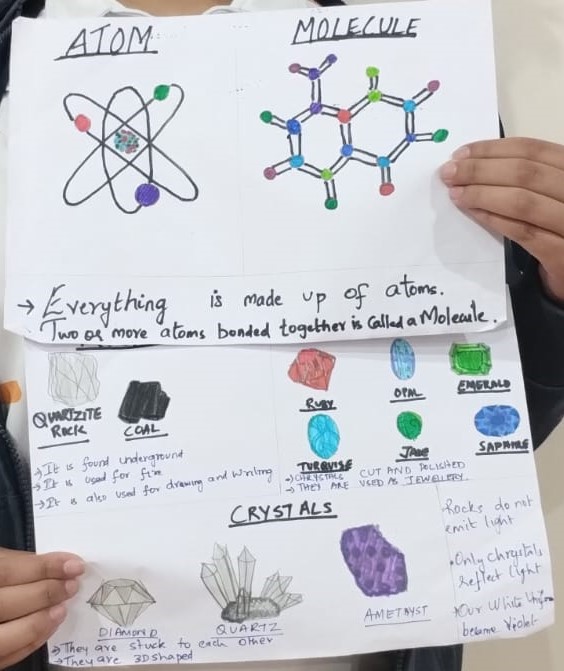 ATOM
MOLECULE
→ Everything is made up of atoms.
Two or more atoms bonded together is Called a Molecule.
QUARTZITE
ROCK
COAL
→ It is found underground
→ It is used for fire
→ It is also used for drawing and writing
RUBY
OPAL
EMERALD
TURQUISE
JADE
SAPHIRE
→ CHRYSTALS CUT AND POLISHED
→ THEY ARE USED AS JEWELLERY.
CRYSTALS
DIAMOND
QUARTZ
AMETHYST
→ They are stuck to each other
→ They are 3D shaped
Rocks do not
emit light
Only Chrystals
reflect light
Our White Uniform
became Violet